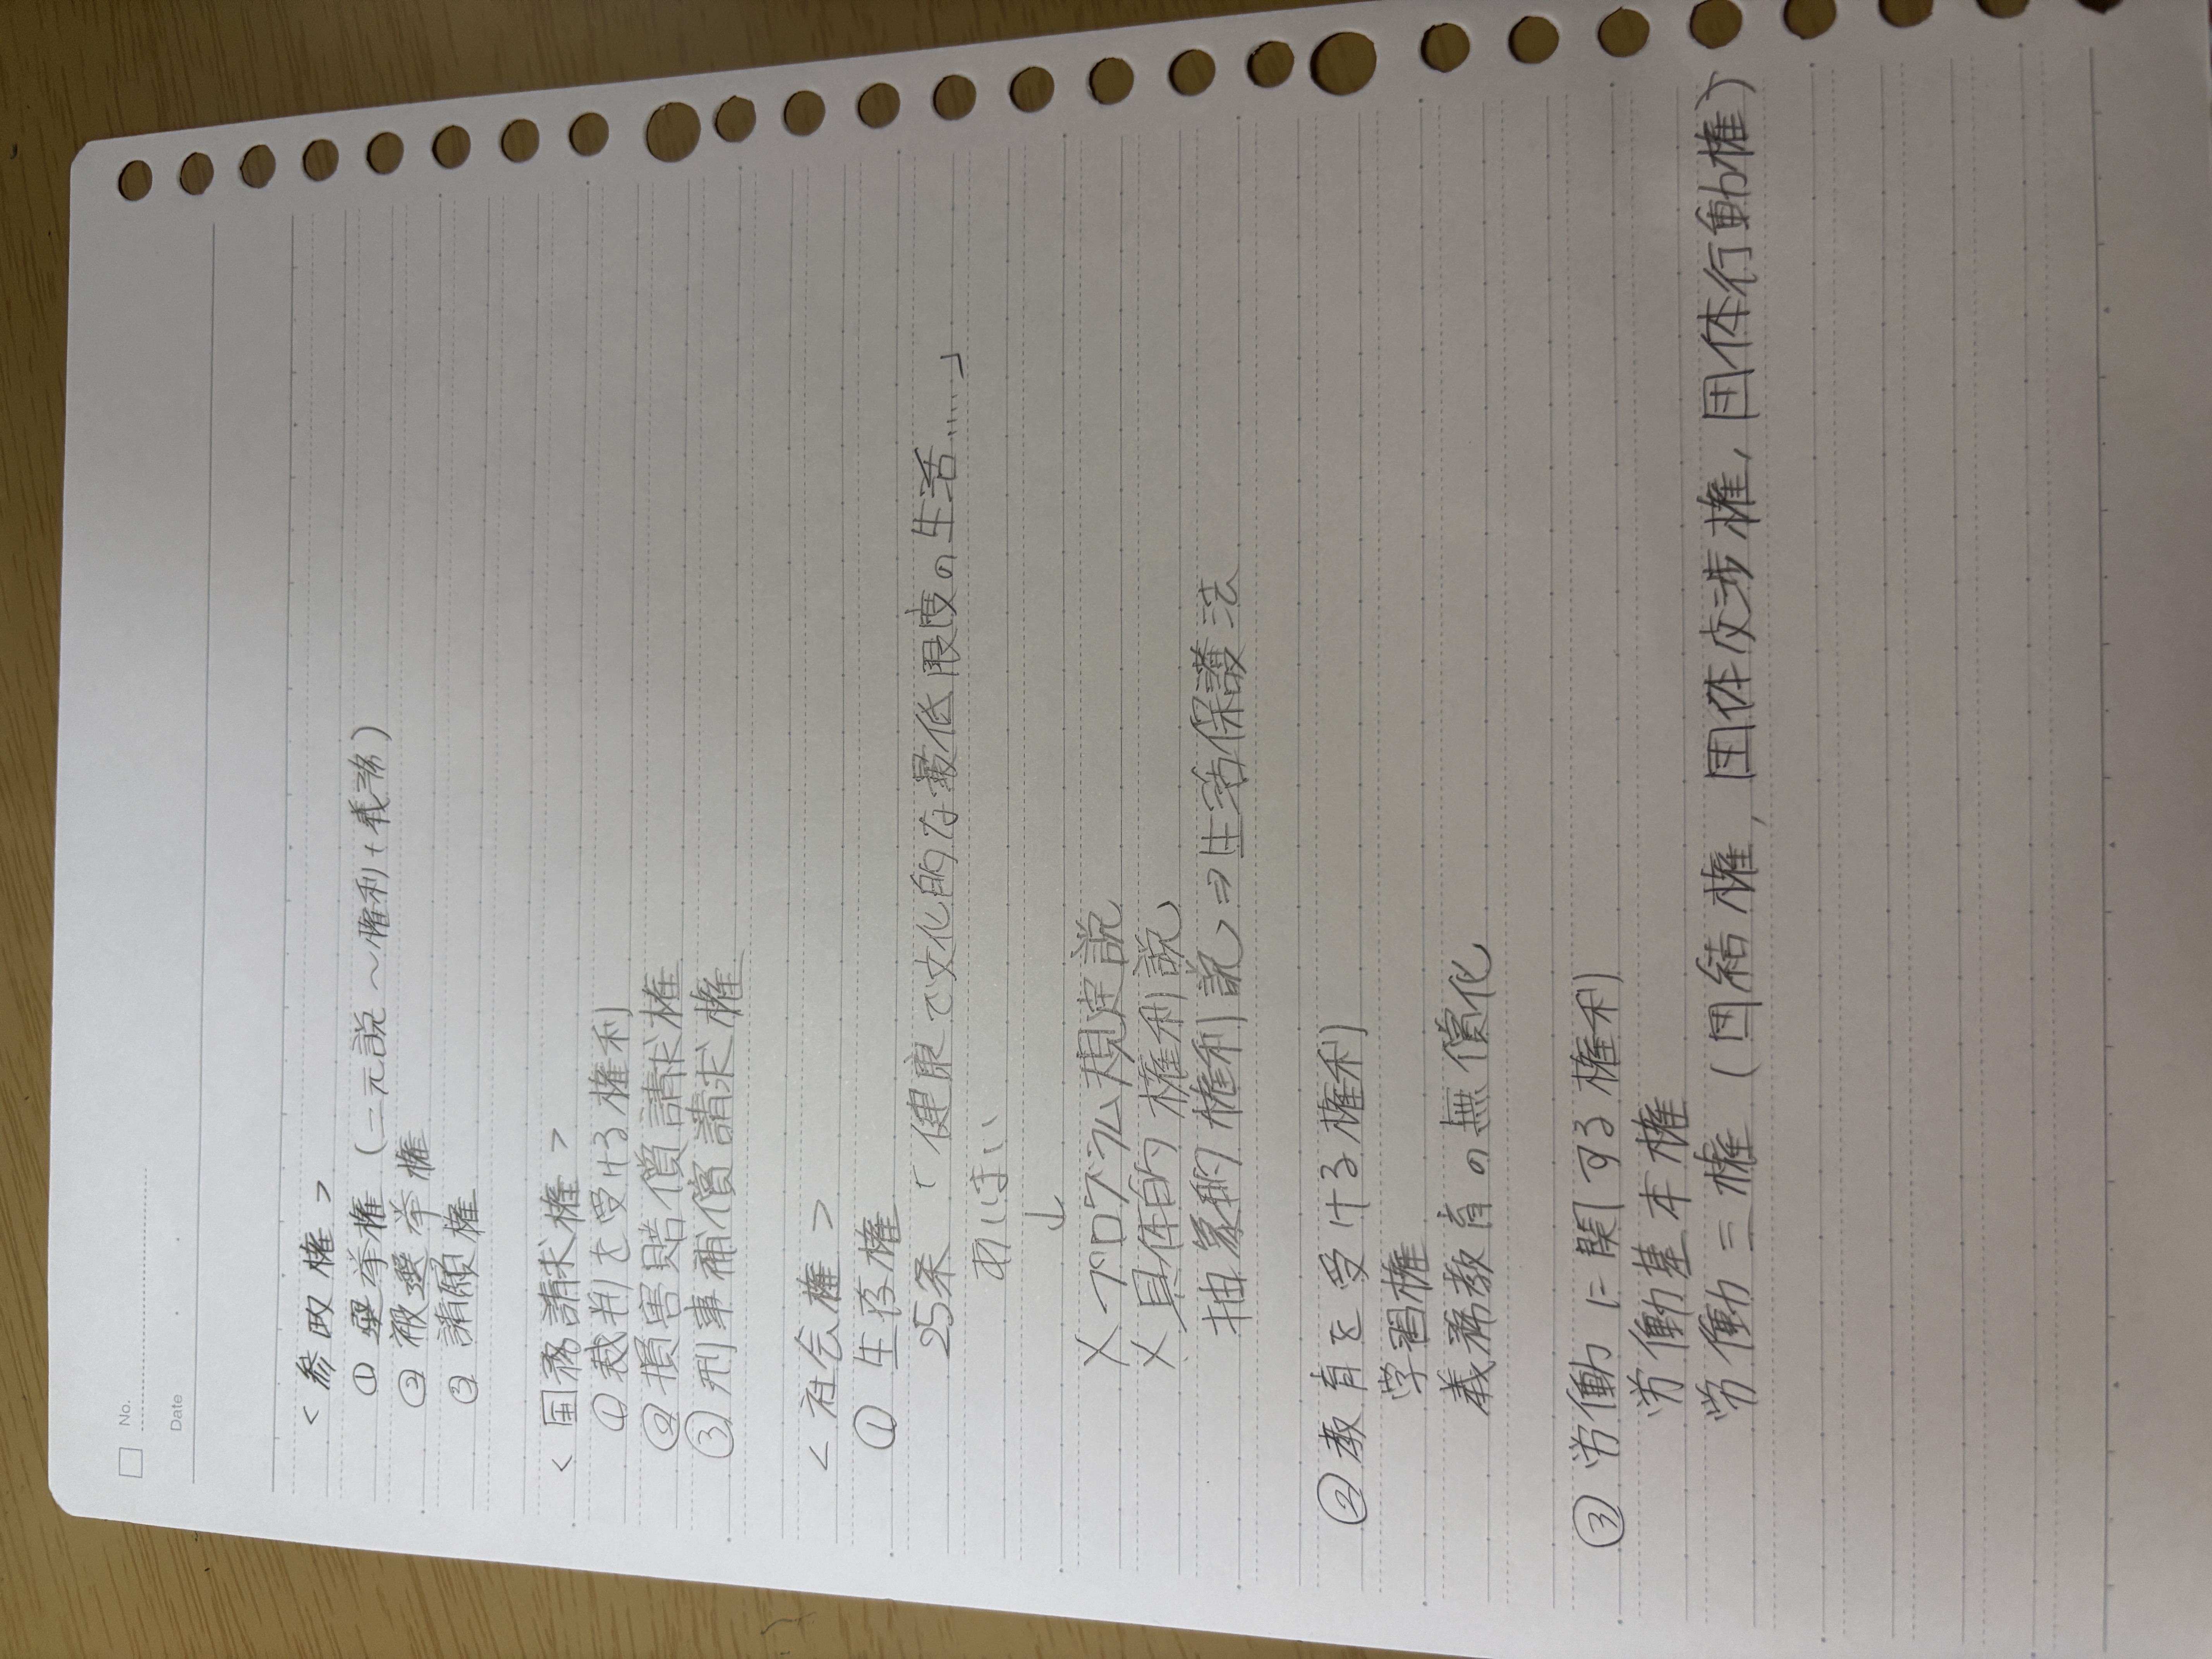 No.
Date
＜参政権＞
① 選挙権（二元説～権利＋義務）
② 被選挙権
③ 請願権
＜国務請求権＞
① 裁判を受ける権利
② 損害賠償請求権
③ 刑事補償請求権
＜社会権＞
① 生存権
25条 「健康で文化的な最低限度の生活.....」
あいまい
↓
× プログラム規定説
× 具体的権利説
抽象的権利説 ⇒ 生活保護法
② 教育を受ける権利
学習権
義務教育の無償化
③ 労働に関する権利
労働基本権
労働三権（団結権, 団体交渉権, 団体行動権）